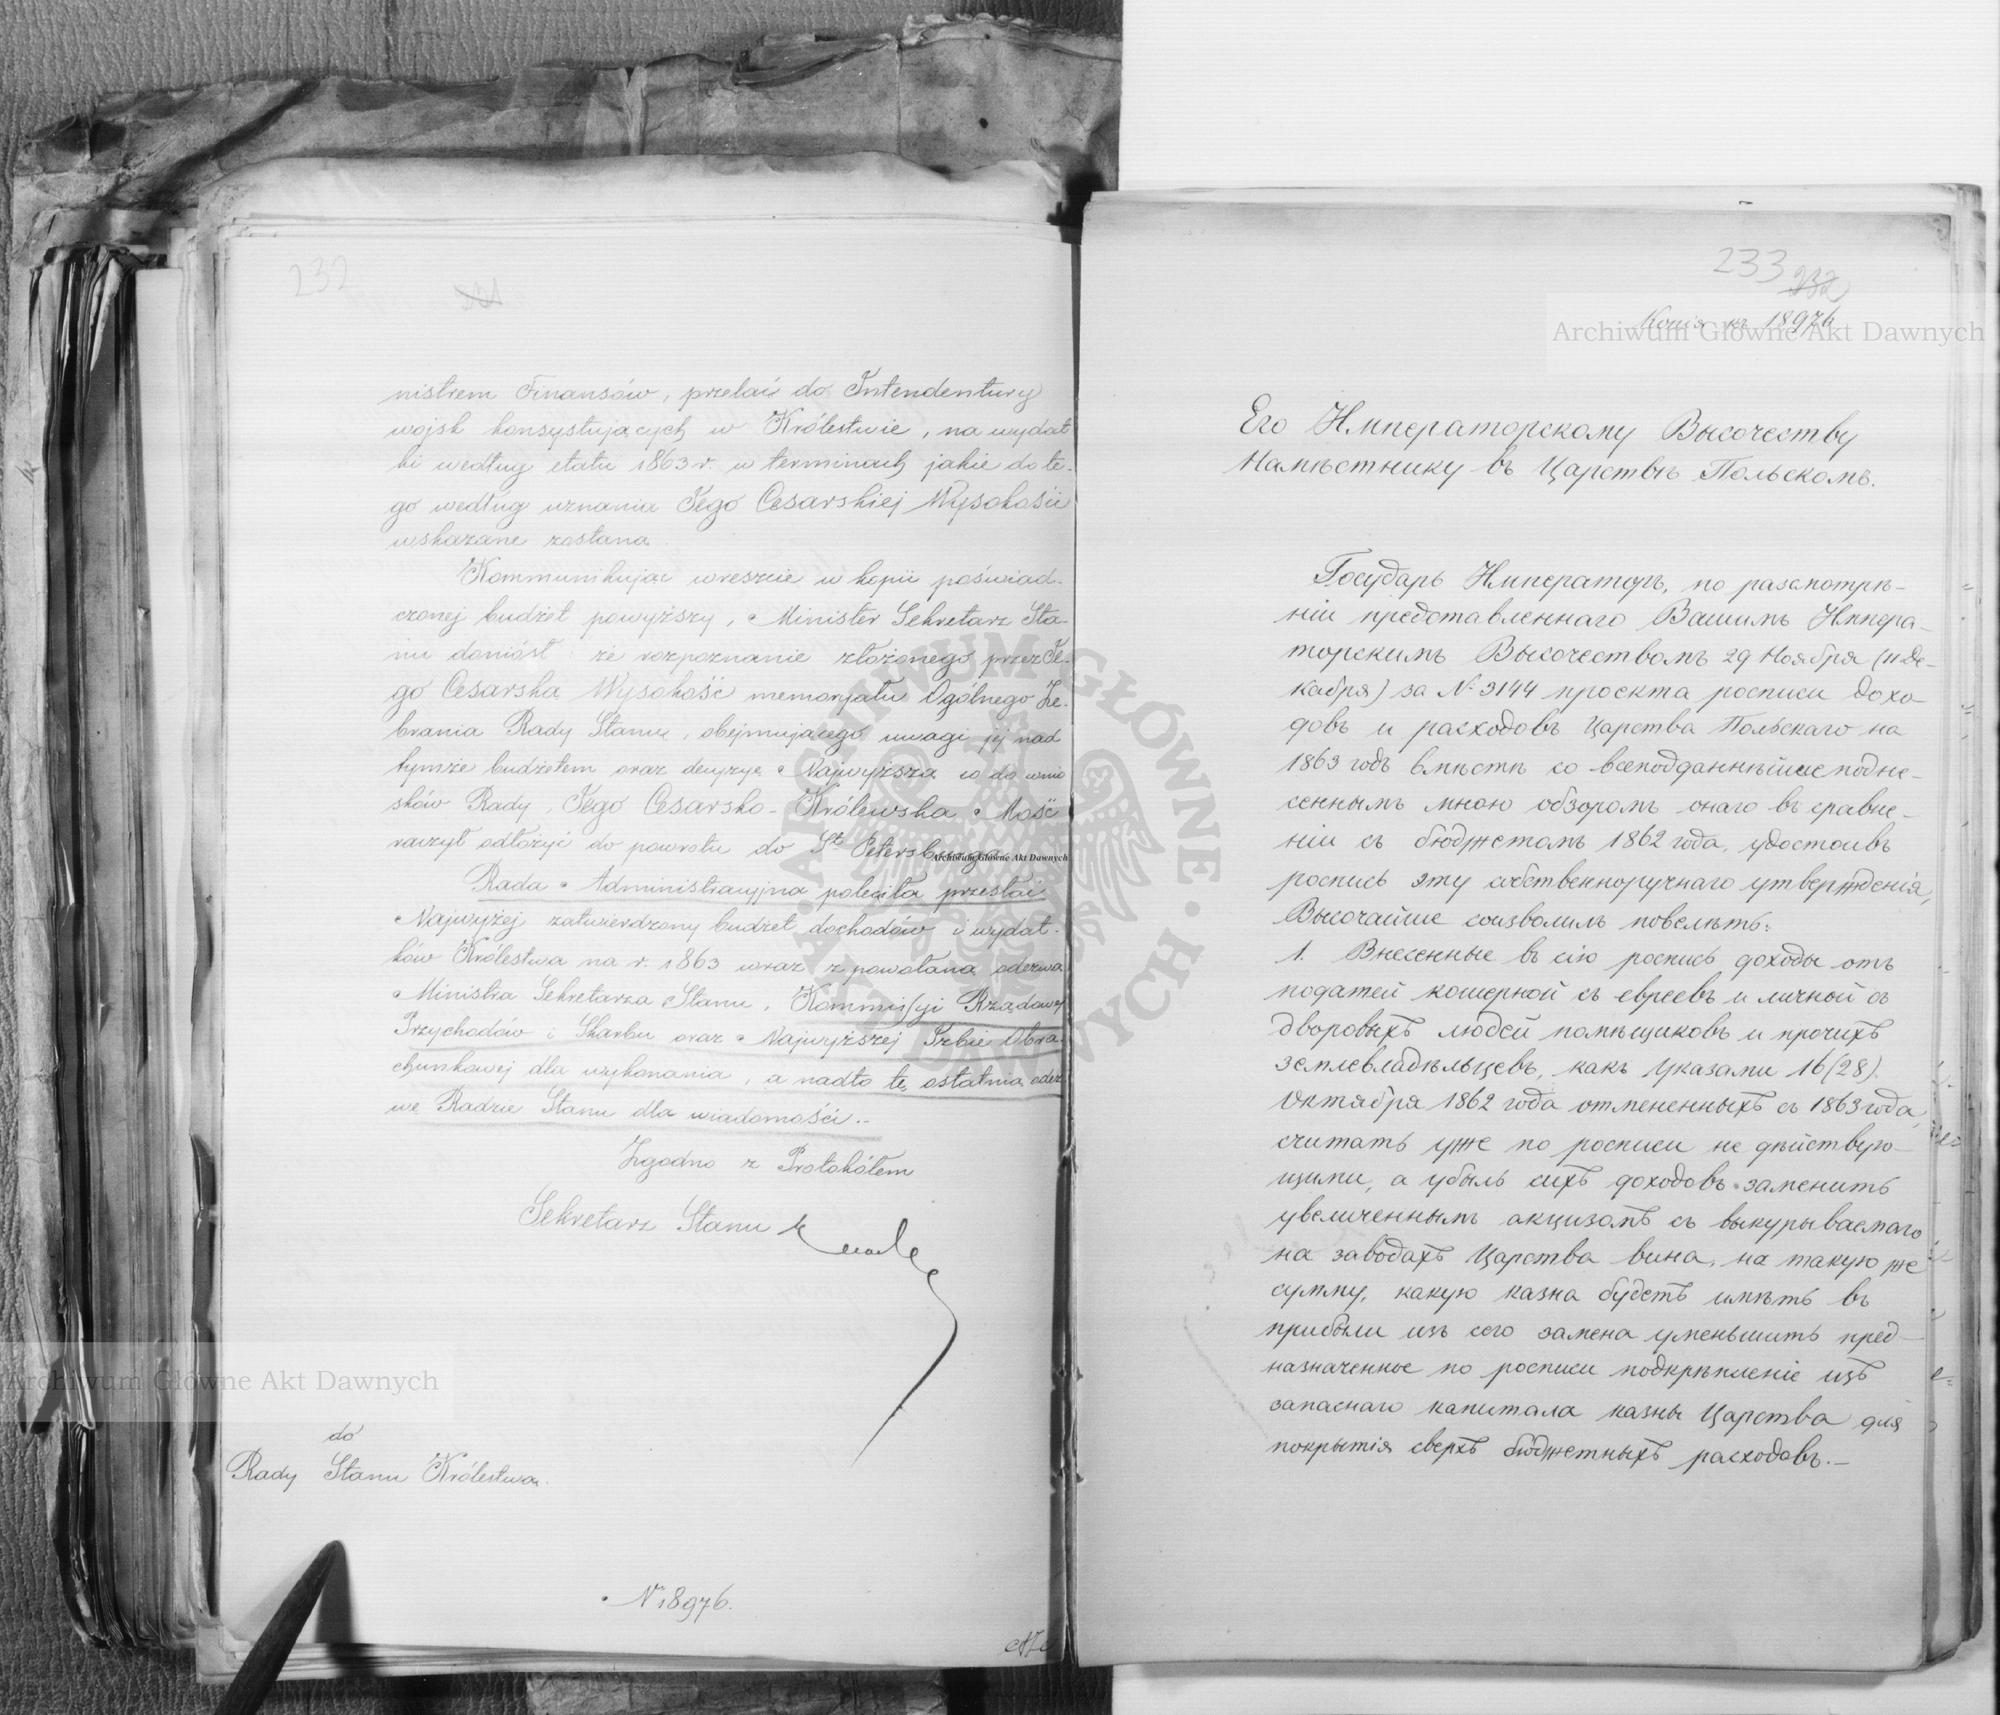 232
nistrem Finansów, przelać do Intendentury
wojsk konsystujących w Królestwie, na wydat
ki według etatu 1863 r. w terminach jakie do te-
go według uznania Jego Cesarskiej Wysokości
wskazane zostaną.
Kommunikując wreszcie w kopii poświad-
czonej budżet powyższy, Minister Sekretarz Sta-
nu doniósł że rozpoznanie złożonego przez Je-
go Cesarską Wysokość memoryału Ogólnego Ze-
brania Rady Stanu, obejmującego uwagi jej nad
tymże budżetem oraz decyzyę Najwyższą co do wnio
sków Rady, Jego Cesarsko-Królewska Mość
raczył odłożyć do powrotu do St Petersburga.
Rada Administracyjna poleciła przesłać
Najwyżej zatwierdzony budżet dochodów i wydat-
ków Królestwa na r. 1863 wraz z powołaną odezwą
Ministra Sekretarza Stanu, Kommissyi Rządowej
Przychodów i Skarbu oraz Najwyższej Izbie Obra-
chunkowej dla wykonania, a nadto tę ostatnią odez
wę Radzie Stanu dla wiadomości.-
Zgodno z Protokółem
Sekretarz Stanu
do
Rady Stanu Królestwa.
N 18976.
233 232
Копія къ 18976
Его Императорскому Высочеству
Намѣстнику въ Царствѣ Польскомъ.
Государь Императоръ, по разсмотрѣ-
ніи представленнаго Вашимъ Импера-
торскимъ Высочествомъ 29 Ноября (11 Де-
кабря) за № 3144 проекта росписи дохо-
довъ и расходовъ Царства Польскаго на
1863 годъ вмѣстѣ со всеподданнѣйше подне-
сеннымъ мною обзоромъ онаго въ сравне-
ніи съ бюджетомъ 1862 года, удостоивъ
роспись эту собственноручнаго утвержденія,
Высочайше соизволилъ повелѣть:
1. Внесенные въ сію роспись доходы отъ
податей кошерной съ евреевъ и личной съ
дворовыхъ людей помѣщиковъ и прочихъ
землевладѣльцевъ, какъ Указами 16 (28)
Октября 1862 года отмененныхъ съ 1863 года,
считать уже по росписи не дѣйствую-
щими, а убыль сихъ доходовъ заменить
увеличеннымъ акцизомъ съ выкурываемаго
на заводахъ Царства вина, на такую же
сумму, какую казна будетъ имѣть въ
прибыли изъ сего замена уменьшить пред-
назначенное по росписи подкрѣпленіе изъ
запаснаго капитала казны Царства для
покрытія сверхъ бюджетныхъ расходовъ.-
Archiwum Główne Akt Dawnych
Archiwum Główne Akt Dawnych
Archiwum Główne Akt Dawnych
ARCHIWUM GŁÓWNE AKT DAWNYCH